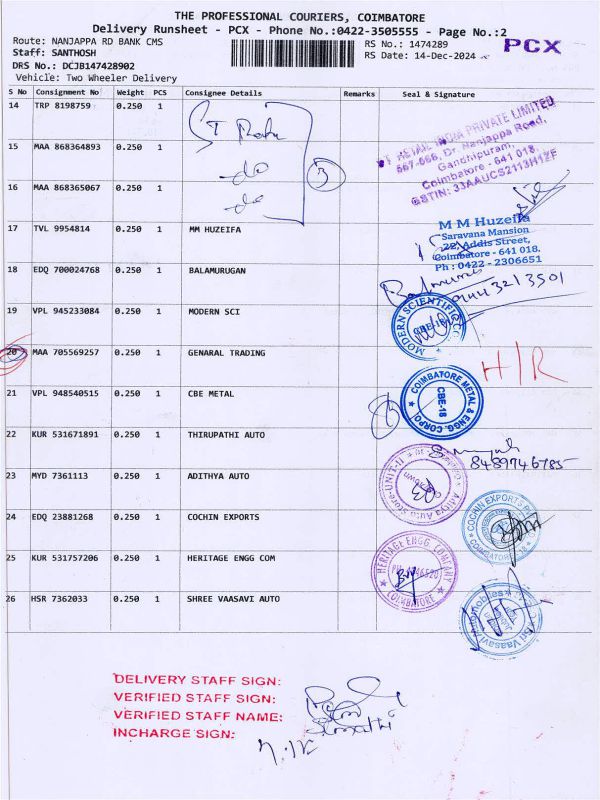 THE PROFESSIONAL COURIERS, COIMBATORE
Delivery Runsheet - PCX - Phone No.:0422-3505555 - Page No.:2
Route: NANJAPPA RD BANK CMS
RS No.: 1474289
Staff: SANTHOSH
RS Date: 14-Dec-2024
PCX
DRS No.: DCJB147428902
Vehicle: Two Wheeler Delivery
S No Consignment No Weight PCS Consignee Details Remarks Seal & Signature
14 TRP 8198759 0.250 1
15 MAA 868364893 0.250 1
do
16 MAA 868365067 0.250 1
do
3
RETAIL INDIA PRIVATE LIMITED
667-666, Dr. Nanjappa Road,
Gandhipuram,
Coimbatore - 641 018.
GSTIN: 33AAUCS2113H1ZF
17 TVL 9954814 0.250 1 MM HUZEIFA
M M Huzeifa
Saravana Mansion
22, Addis Street,
Coimbatore - 641 018.
Ph : 0422 - 2306651
18 EDQ 700024768 0.250 1 BALAMURUGAN
9444 3213501
19 VPL 945233084 0.250 1 MODERN SCI
MODERN SCIENTIFIC CO.
CBE-18
20 MAA 705569257 0.250 1 GENARAL TRADING
H/R
21 VPL 948540515 0.250 1 CBE METAL
COIMBATORE METAL & ENGG. CORPO
CBE-18
22 KUR 531671891 0.250 1 THIRUPATHI AUTO
8489746785
23 MYD 7361113 0.250 1 ADITHYA AUTO
Aditya Auto Store-UNIT-II
24 EDQ 23881268 0.250 1 COCHIN EXPORTS
COCHIN EXPORTS
COIMBATORE - 18
25 KUR 531757206 0.250 1 HERITAGE ENGG COM
HERITAGE ENGG. COMPANY
COIMBATORE
26 HSR 7362033 0.250 1 SHREE VAASAVI AUTO
Sri Vaasavi Automobiles
DELIVERY STAFF SIGN:
VERIFIED STAFF SIGN:
VERIFIED STAFF NAME:
INCHARGE SIGN: